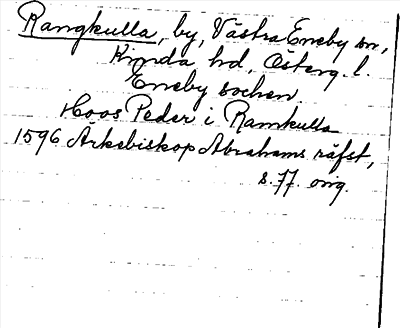 Rangkulla, by, Västra Eneby sn,
Kinda hd, Österg. l.
Eneby sochen
Hoos Peder i Ramkulla
1596 Ärkebiskop Abrahams räfst,
s. 77. orig.